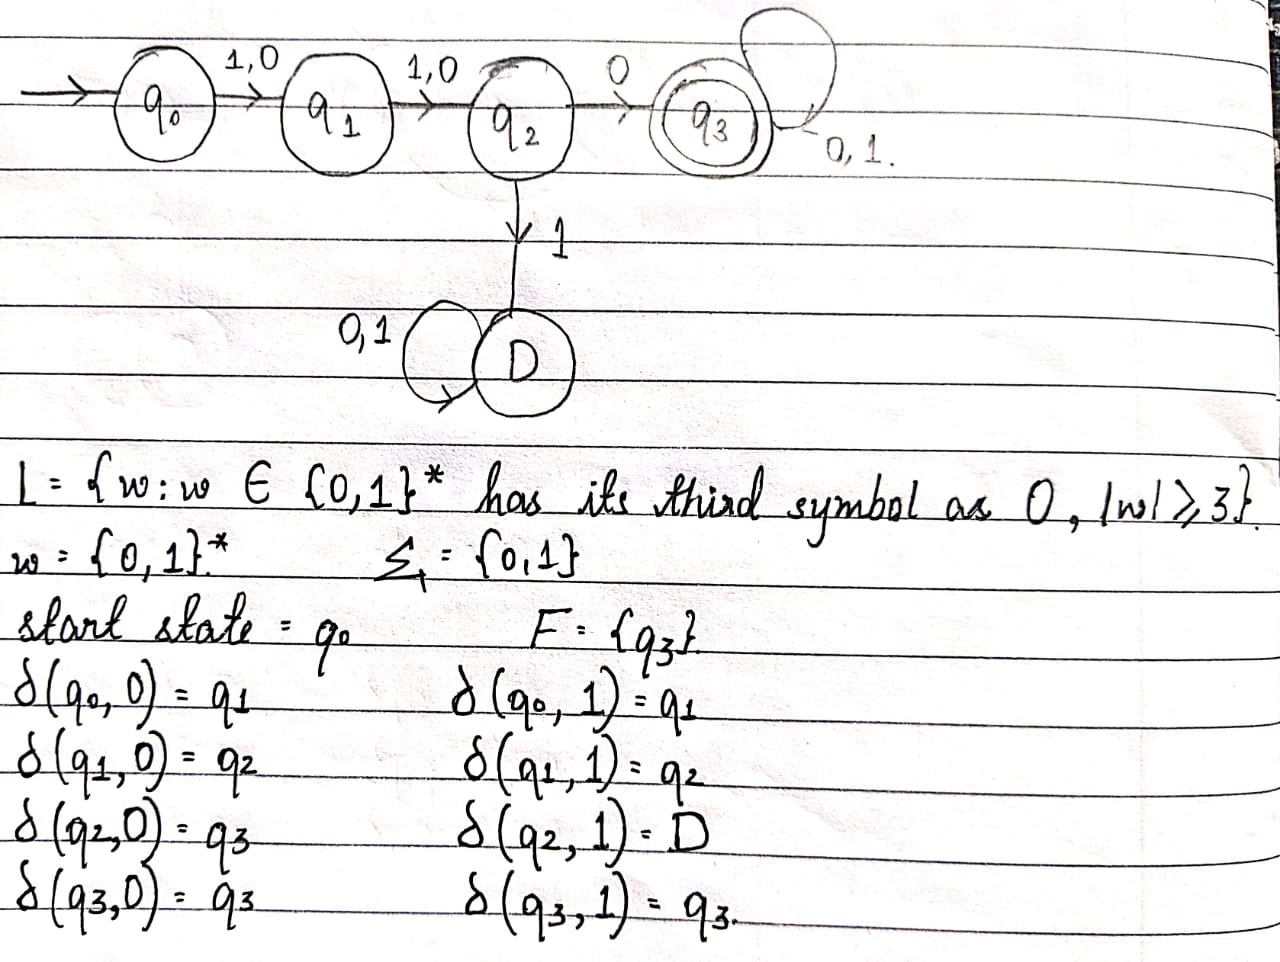 1,0 1,0 0
q₀ q₁ q₂ q₃
0, 1.
1
0,1 D
L = {w : w ∈ {0,1}* has its third symbol as 0, |w| ⩾ 3}.
w = {0, 1}.* Σ = {0,1}
start state = q₀ F = {q₃}.
δ(q₀, 0) = q₁ δ(q₀, 1) = q₁
δ(q₁, 0) = q₂ δ(q₁, 1) = q₂
δ(q₂, 0) = q₃ δ(q₂, 1) = D
δ(q₃, 0) = q₃ δ(q₃, 1) = q₃.